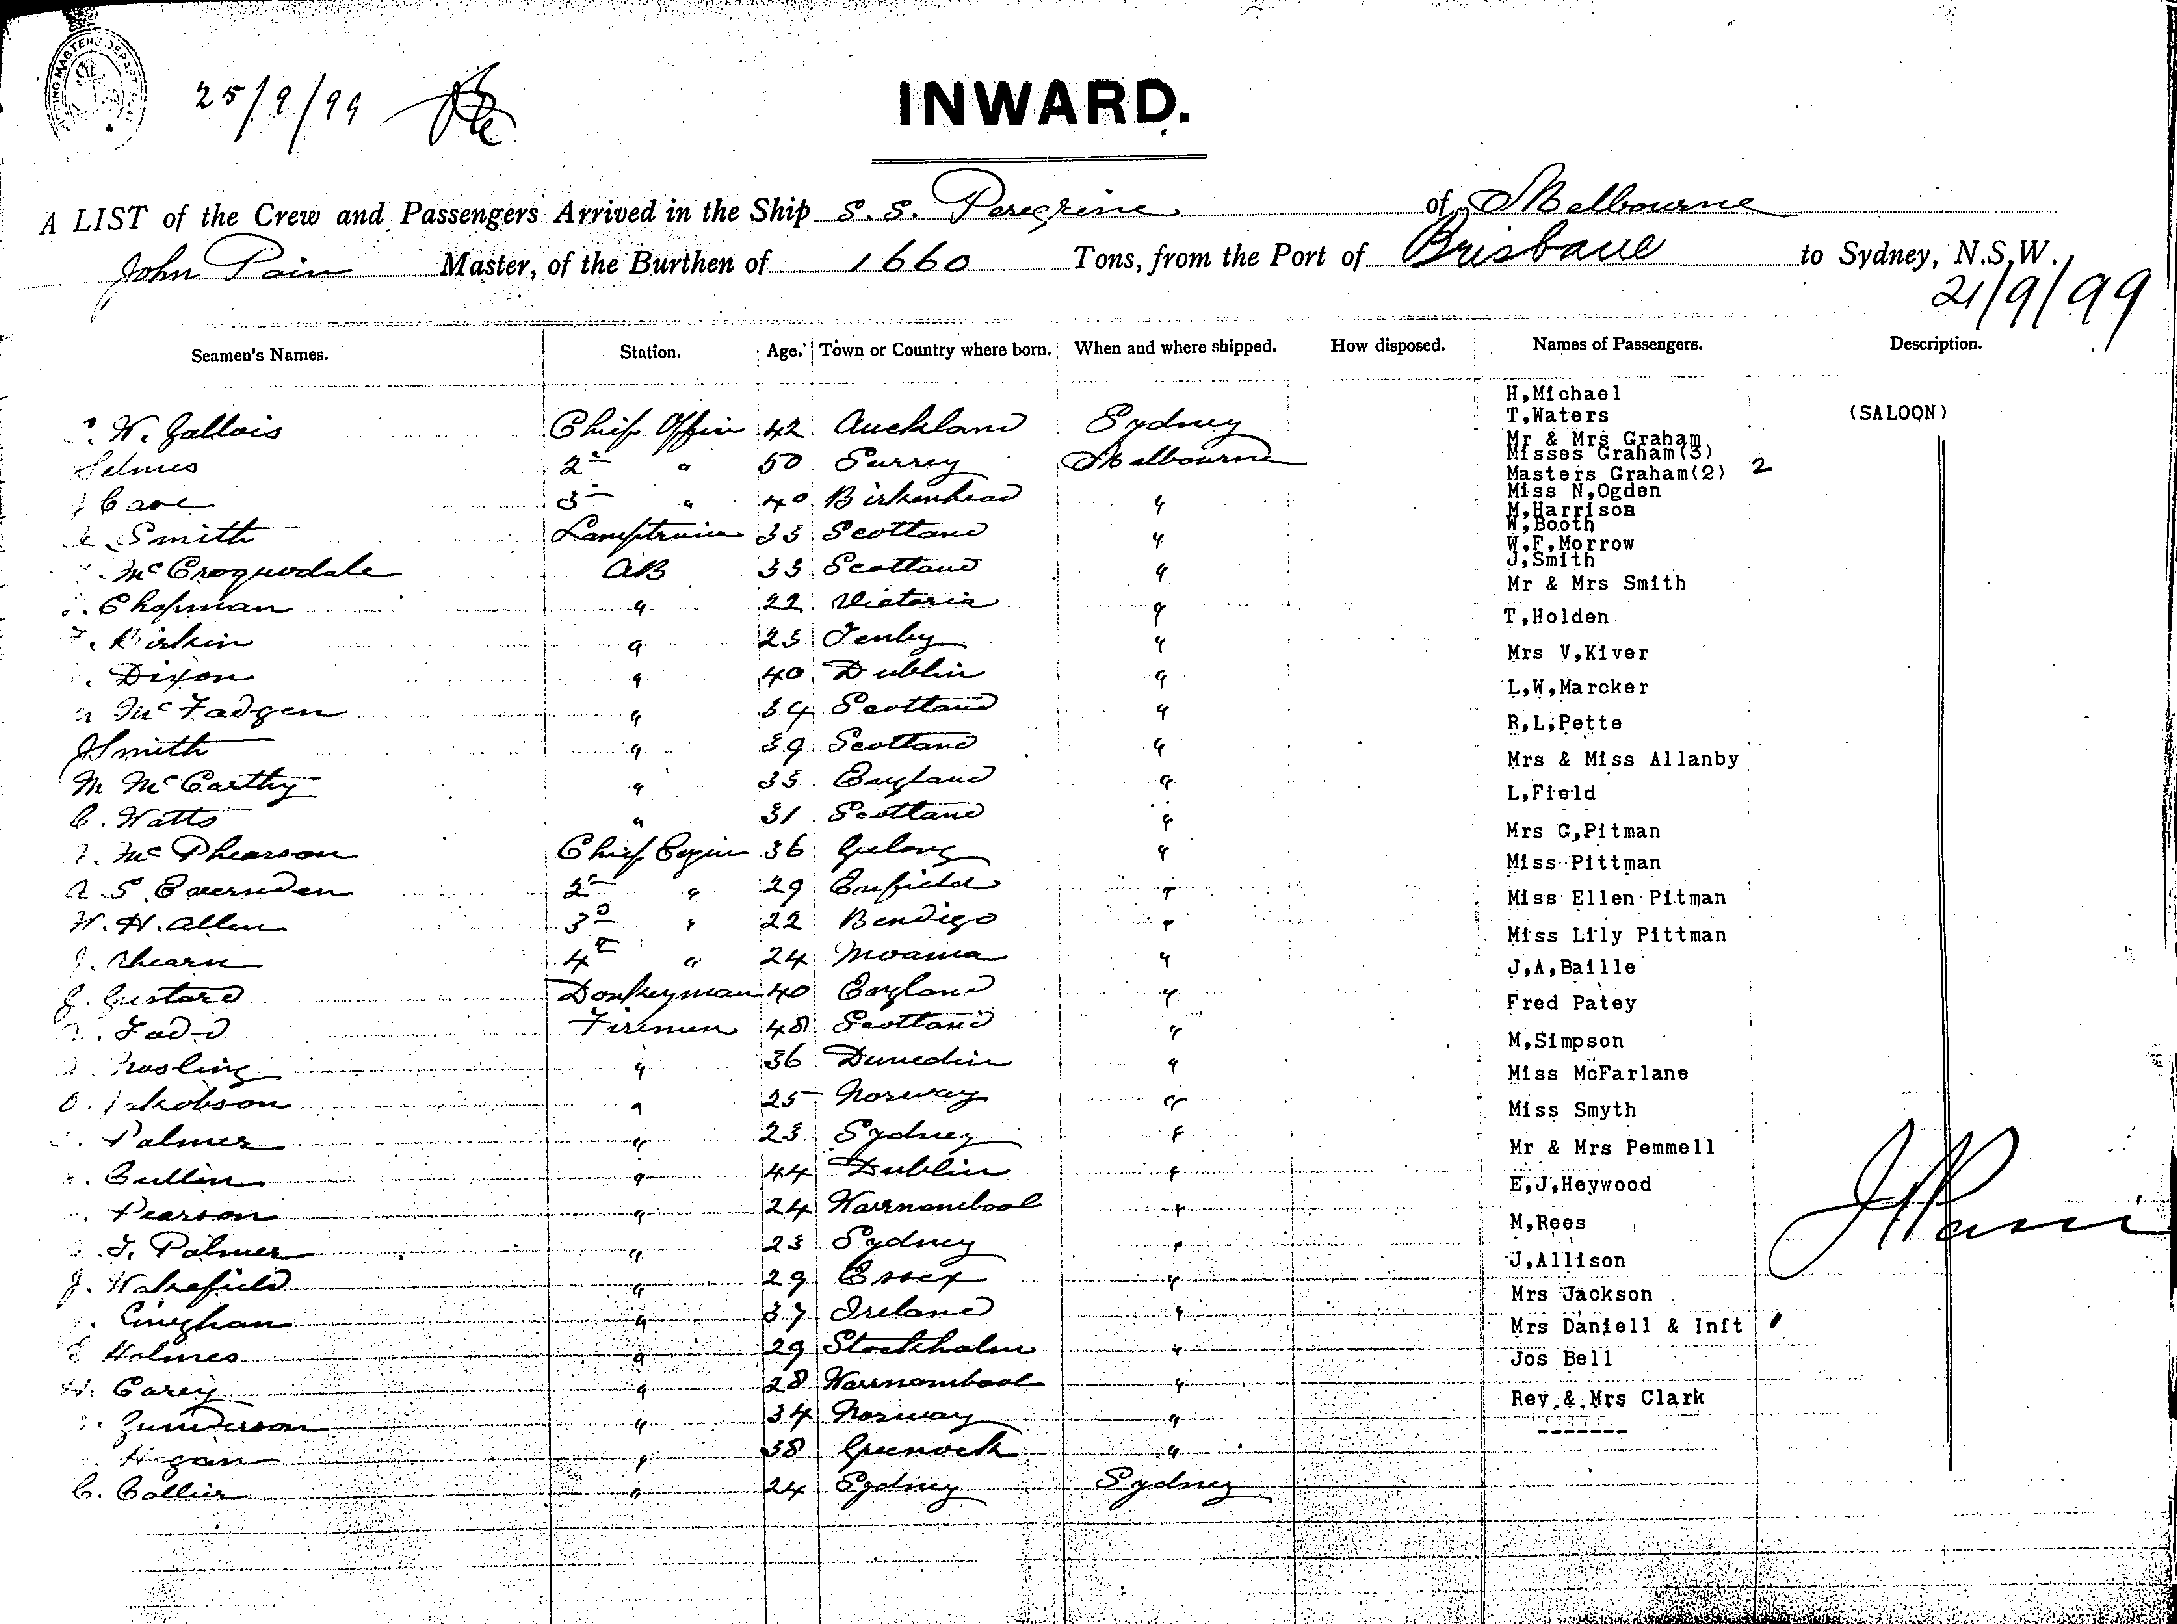 25/9/99
INWARD.
A LIST of the Crew and Passengers Arrived in the Ship S.S. Peregrine of Melbourne
John Pain Master, of the Burthen of 1660 Tons, from the Port of Brisbane to Sydney, N.S.W.,
21/9/99
Seamen's Names. Station. Age. Town or Country where born. When and where shipped. How disposed. Names of Passengers. Description.
W. Gallois Chief Officer 42 Auckland Sydney
Selmes 2nd " 50 Surrey Melbourne
Cave 3rd " 40 Birkenhead "
Smith Lamptrimmer 33 Scotland "
McCroquodale AB 33 Scotland "
Chapman " 22 Victoria "
Birkin " 23 Tenby "
Dixon " 40 Dublin "
McFadgen " 34 Scotland "
J Smith " 39 Scotland "
M McCarthy " 35 England "
C. Watts " 31 Scotland "
McPhearson Chief Engin 36 Gelong "
A S Evernden 2nd " 29 Enfield "
W. H. Allen 3rd " 22 Bendigo "
J. Ahearn 4th " 24 Moama "
J. Gustard Donkeyman 40 England "
Ladd Firemen 48 Scotland "
Nosling " 36 Dunedin "
O. Jakobson " 25 Norway "
Palmer " 23 Sydney "
Cullin " 44 Dublin "
Pearson " 24 Warrnambool "
J. Palmer " 23 Sydney "
J. Wakefield " 29 Essex "
" 37 Ireland "
Holmes " 29 Stockholm "
H. Carey " 28 Warnambool "
Gunderson " 34 Norway "
Hogan " 38 Greenock "
C. Collier " 24 Sydney Sydney
H,Michael
T,Waters (SALOON)
Mr & Mrs Graham
Misses Graham(3)
Masters Graham(2) 2
Miss N,Ogden
M,Harrison
W,Booth
W,F,Morrow
J,Smith
Mr & Mrs Smith
T,Holden
Mrs V,Kiver
L,W,Marcker
R,L,Pette
Mrs & Miss Allanby
L,Field
Mrs G,Pitman
Miss Pittman
Miss Ellen Pitman
Miss Lily Pittman
J,A,Baille
Fred Patey
M,Simpson
Miss McFarlane
Miss Smyth
Mr & Mrs Pemmell
E,J,Heywood
M,Rees
J,Allison
Mrs Jackson
Mrs Daniell & Inft 1
Jos Bell
Rev,& Mrs Clark
-------
J Pain